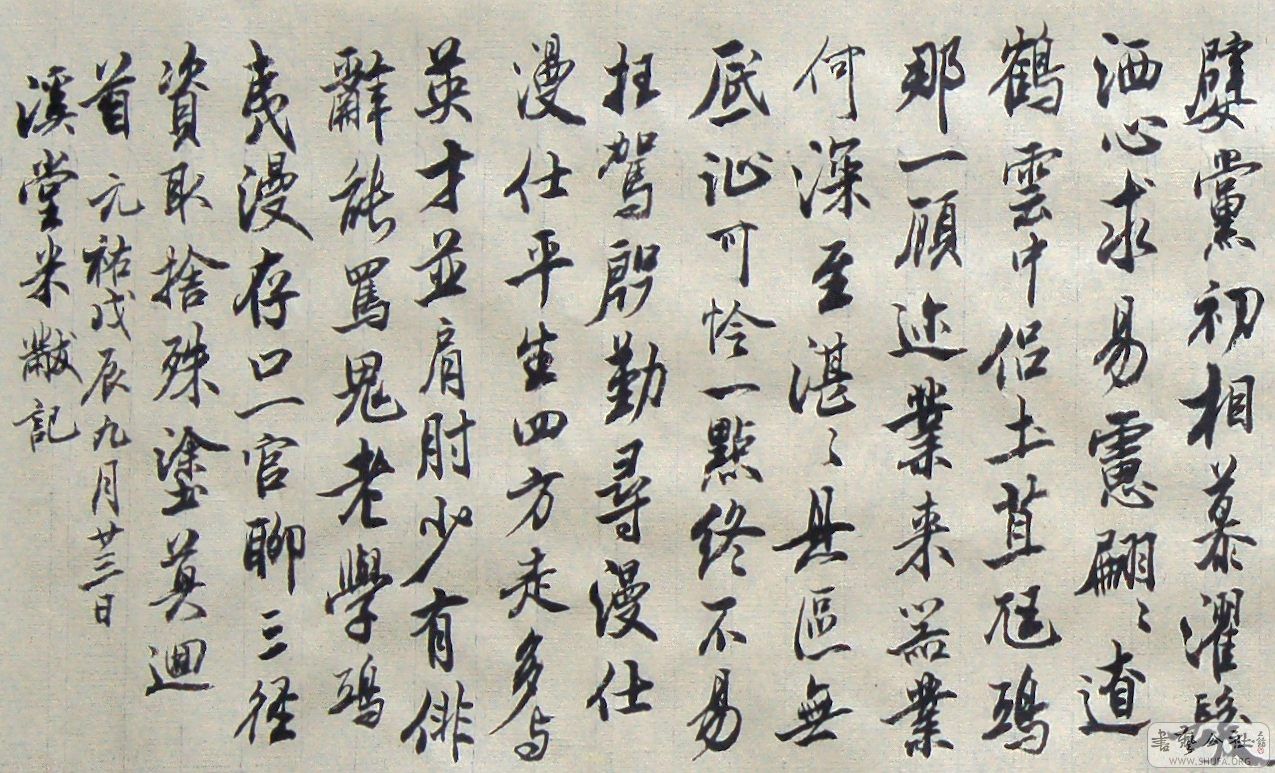 嬖黨初相慕濯髮
洒心求易慮翩〻遼
鶴雲中侶土苴尫鴟
那一顧迩業来器業
何深至湛〻具區無
底沚可怜一點終不易
枉駕殷勤尋漫仕
漫仕平生四方走多与
英才並肩肘少有俳
辭能罵鬼老學鴟
夷漫存口一官聊三径
資取捨殊塗莫迴
首 元祐戊辰九月廿三日
溪堂米黻記
書藝公社
WWW.SHUFA.ORG